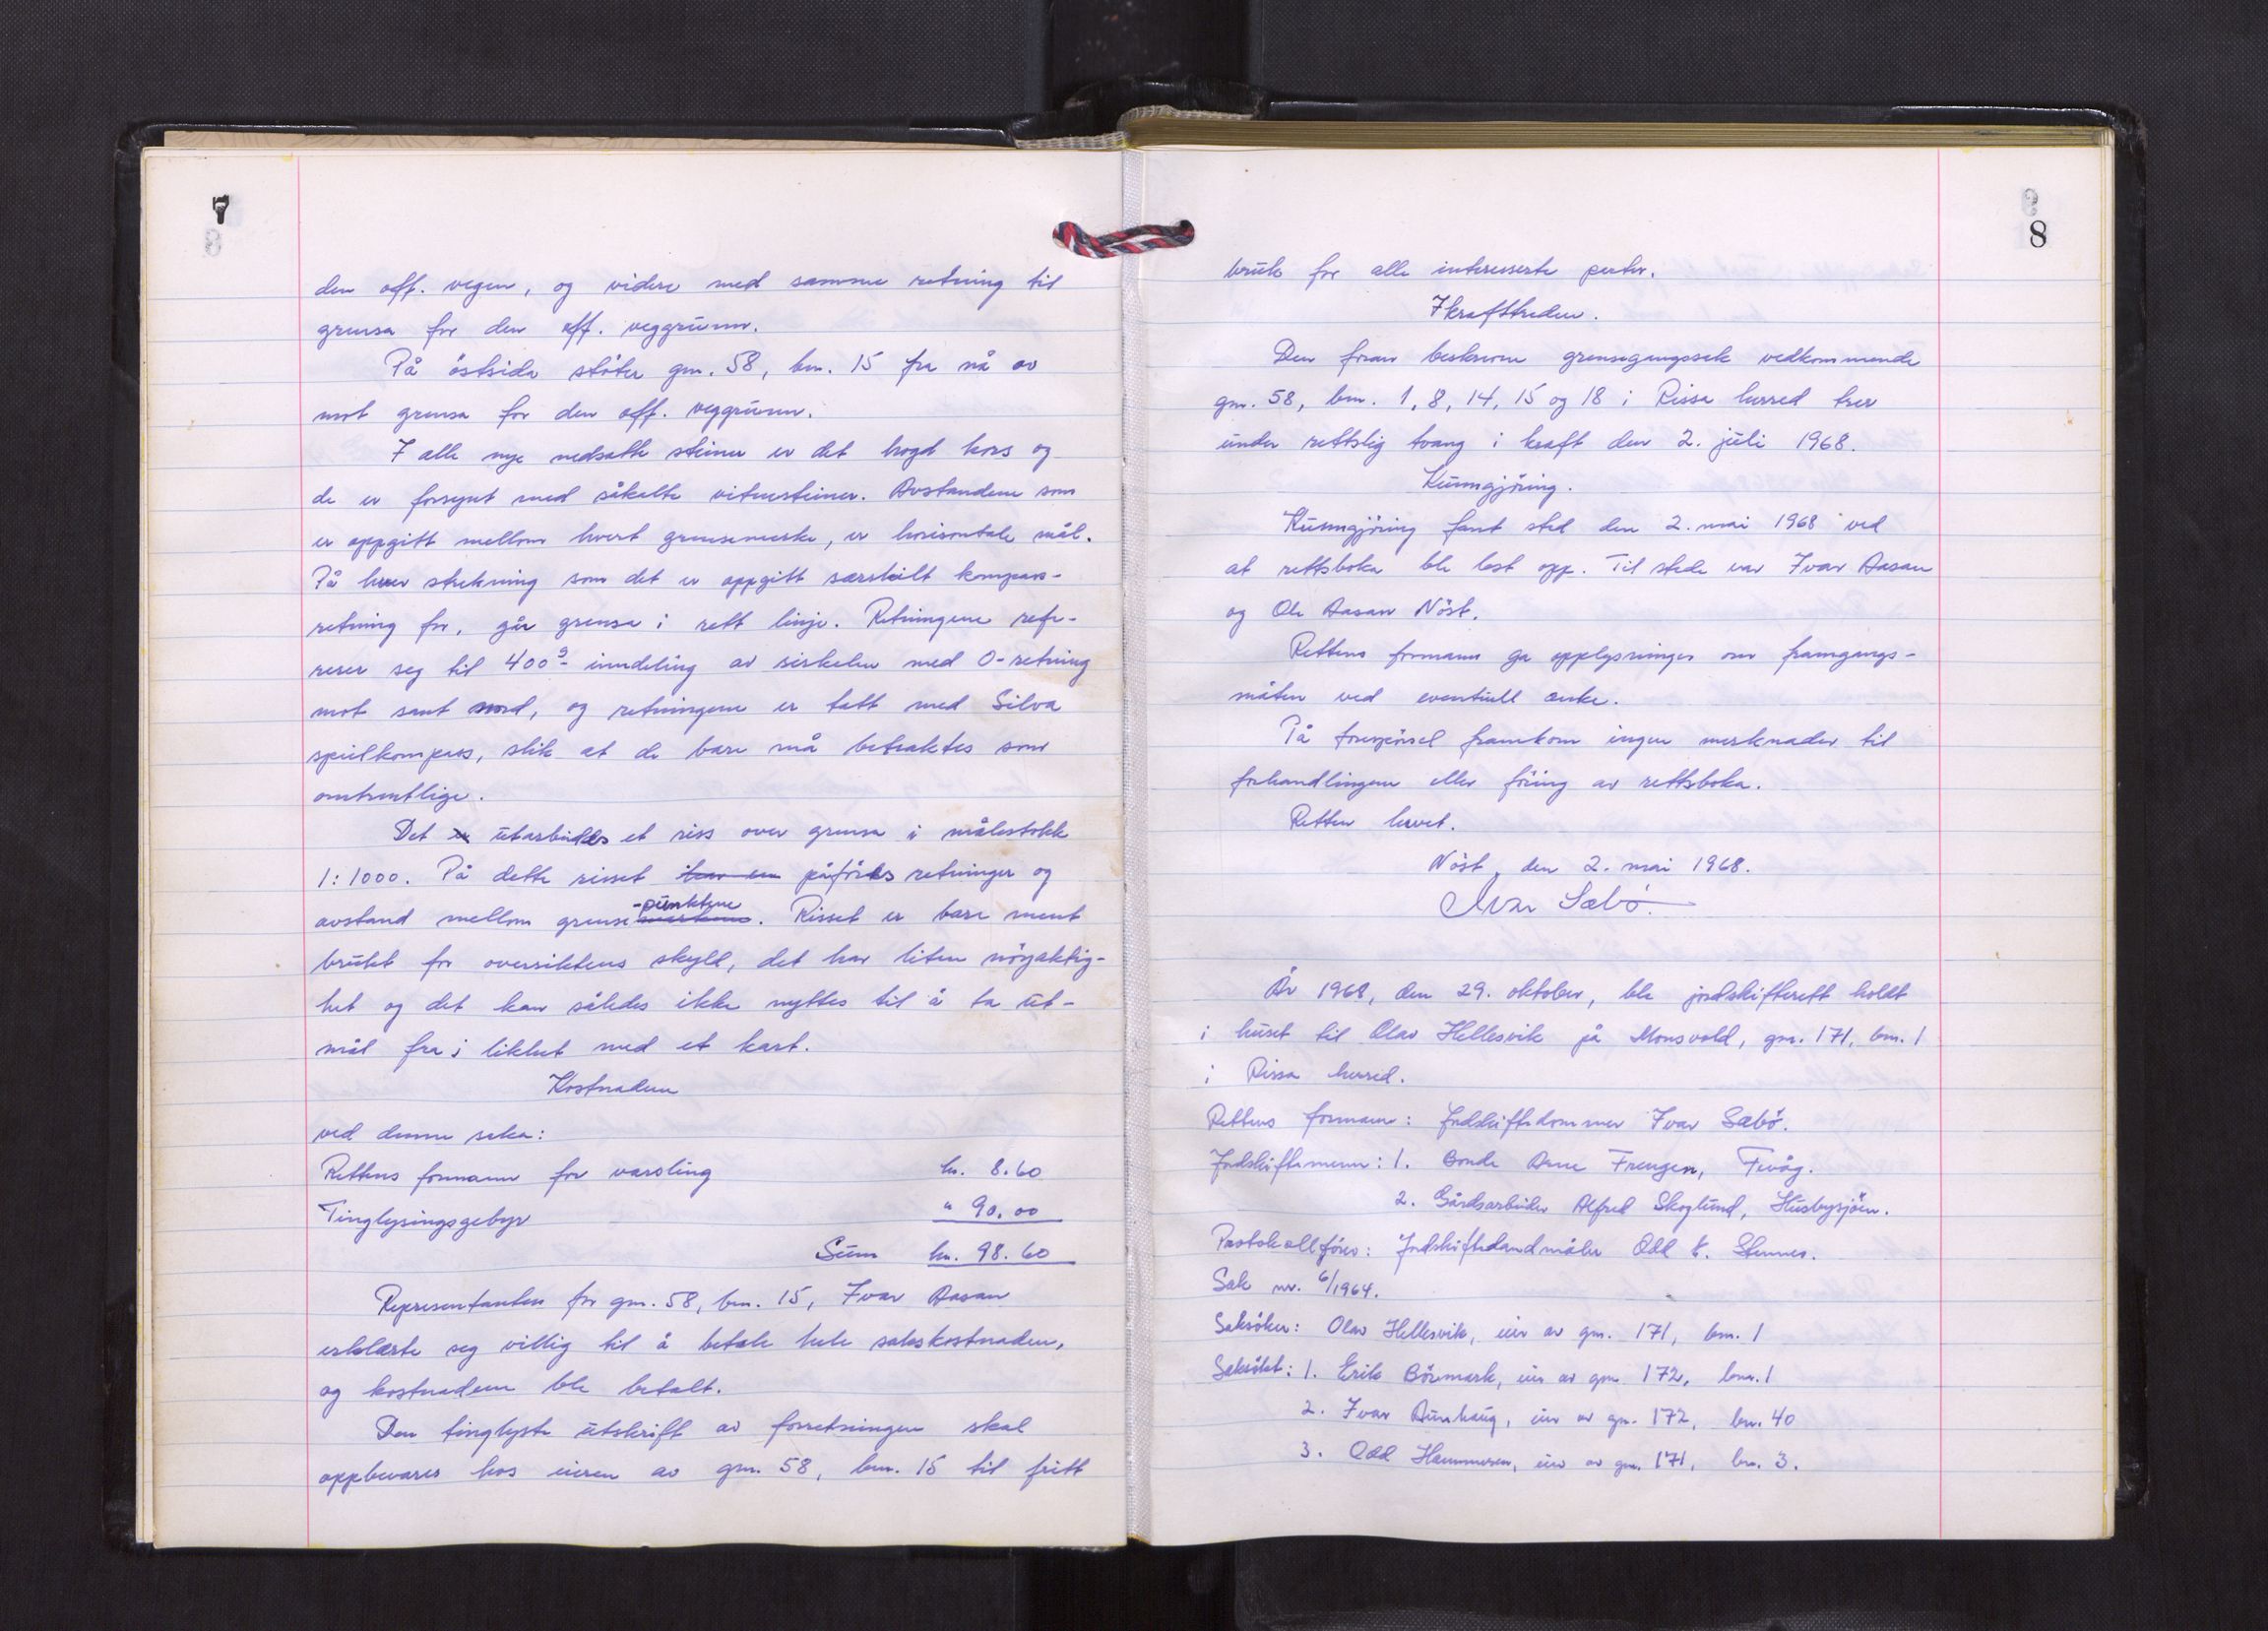 7
den off. vegen, og videre med samme retning til
grensa for den off. veggrunn.
På östsida stöter gnr. 58, bnr. 15 fra nå av
mot grensa for den off. veggrunn.
I alle nye nedsatte steiner er det hogd kors og
de er forsynt med såkalte vitnesteiner. Avstandene som
er oppgitt mellom hvert grensemerke, er horisontale mål.
På hver strekning som det er oppgitt særskilt kompass-
retning for, går grensa i rett linje. Retningene refe-
rerer seg til 400g- inndeling av sirkelen med 0-retning
mot sant nord, og retningene er tatt med Silva
speilkompass, slik at de bare må betraktes som
omtrentlige.
Det er utarbeides et riss over grensa i målestokk
1:1000. På dette risset påföres retninger og
avstand mellom grense-punktene. Risset er bare ment
brukt for oversiktens skyld, det har liten nöyaktig-
het og det kan således ikke nyttes til å ta ut-
mål fra i likhet med et kart.
Kostnaden
ved denne saka:
Rettens formann for varsling kr. 8.60
Tinglysingsgebyr " 90.00
Sum kr. 98.60
Representanten for gnr. 58, bnr. 15, Ivar Aasan
erklærte seg villig til å betale hele sakskostnaden,
og kostnadene ble betalt.
Den tinglyste utskrift av forretningen skal
oppbevares hos eieren av gnr. 58, bnr. 15 til fritt
8
bruk for alle interesserte parter.
Ikrafttreden.
Den foran beskrevne grensegangssak vedkommende
gnr. 58, bnr. 1, 8, 14, 15 og 18 i Rissa herred trer
under rettslig tvang i kraft den 2. juli 1968.
Kunngjöring.
Kunngjöring fant sted den 2. mai 1968 ved
at rettsboka ble lest opp. Til stede var Ivar Aasan
og Ole Aasan Nöst.
Rettens formann ga opplysninger om framgangs-
måten ved eventuell anke.
På forespörsel framkom ingen merknader til
forhandlingene eller föring av rettsboka.
Retten hevet.
Nöst, den 2. mai 1968.
Ivar Sæbö.
År 1968, den 29. oktober, ble jordskifterett holdt
i huset til Olav Hellesvik på Monsvold, gnr. 171, bnr. 1
i Rissa herred.
Rettens formann: Jordskiftedommer Ivar Sæbö.
Jordskiftemenn: 1. Bonde Arne Frengen, Fevåg.
2. Gårdsarbeider Alfred Skoglund, Husbysjöen.
Protokollförer: Jordskiftelandmåler Odd E. Stennes.
Sak nr. 6/1964.
Saksöker: Olav Hellesvik, eier av gnr. 171, bnr. 1
Saksökt: 1. Erik Börmark, eier av gnr. 172, bnr. 1
2. Ivar Aunhaug, eier av gnr. 172, bnr. 40
3. Odd Hammeren, eier av gnr. 171, bnr. 3.